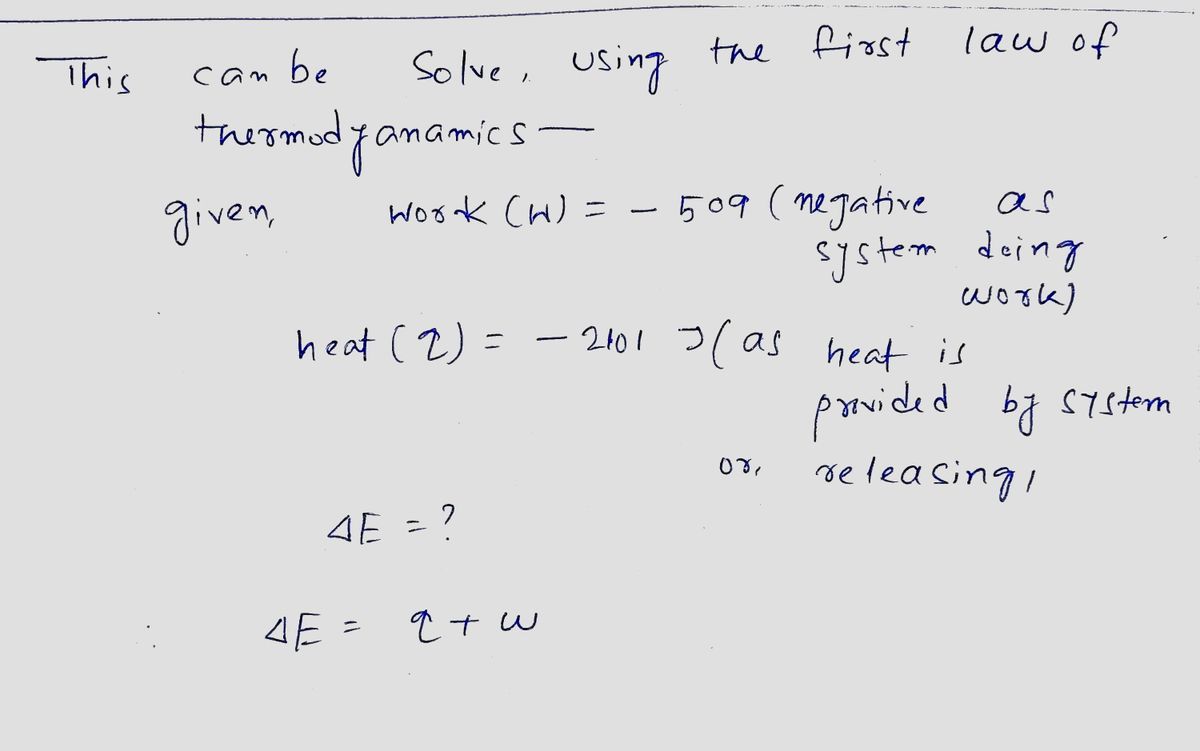 This can be Solve, using the first law of
thermodyanamics —
given, Work (W) = - 509 (negative as
system doing
work)
heat (q) = - 2101 J (as heat is
provided by system
or, releasing,
ΔE = ?
∴ ΔE = q + w